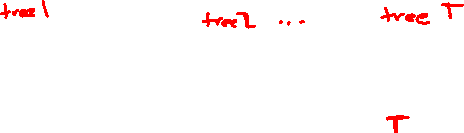 tree1 tree2 ... tree T
T